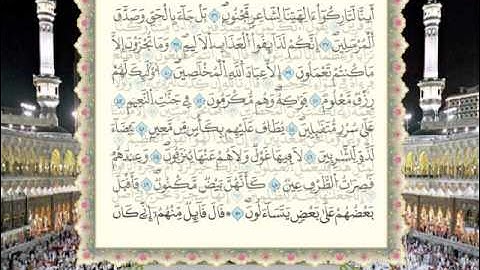 أَئِنَّا لَتَارِكُوٓا۟ ءَالِهَتِنَا لِشَاعِرٍ مَّجْنُونٍ ۝٣٦ بَلْ جَآءَ بِٱلْحَقِّ وَصَدَّقَ
ٱلْمُرْسَلِينَ ۝٣٧ إِنَّكُمْ لَذَآئِقُوا۟ ٱلْعَذَابِ ٱلْأَلِيمِ ۝٣٨ وَمَا تُجْزَوْنَ إِلَّا
مَا كُنتُمْ تَعْمَلُونَ ۝٣٩ إِلَّا عِبَادَ ٱللَّهِ ٱلْمُخْلَصِينَ ۝٤٠ أُو۟لَٰٓئِكَ لَهُمْ
رِزْقٌ مَّعْلُومٌ ۝٤١ فَوَٰكِهُ وَهُم مُّكْرَمُونَ ۝٤٢ فِى جَنَّٰتِ ٱلنَّعِيمِ ۝٤٣
عَلَىٰ سُرُرٍ مُّتَقَٰبِلِينَ ۝٤٤ يُطَافُ عَلَيْهِم بِكَأْسٍ مِّن مَّعِينٍ ۝٤٥ بَيْضَآءَ
لَذَّةٍ لِّلشَّٰرِبِينَ ۝٤٦ لَا فِيهَا غَوْلٌ وَلَا هُمْ عَنْهَا يُنزَفُونَ ۝٤٧ وَعِندَهُمْ
قَٰصِرَٰتُ ٱلطَّرْفِ عِينٌ ۝٤٨ كَأَنَّهُنَّ بَيْضٌ مَّكْنُونٌ ۝٤٩ فَأَقْبَلَ
بَعْضُهُمْ عَلَىٰ بَعْضٍ يَتَسَآءَلُونَ ۝٥٠ قَالَ قَآئِلٌ مِّنْهُمْ إِنِّى كَانَ